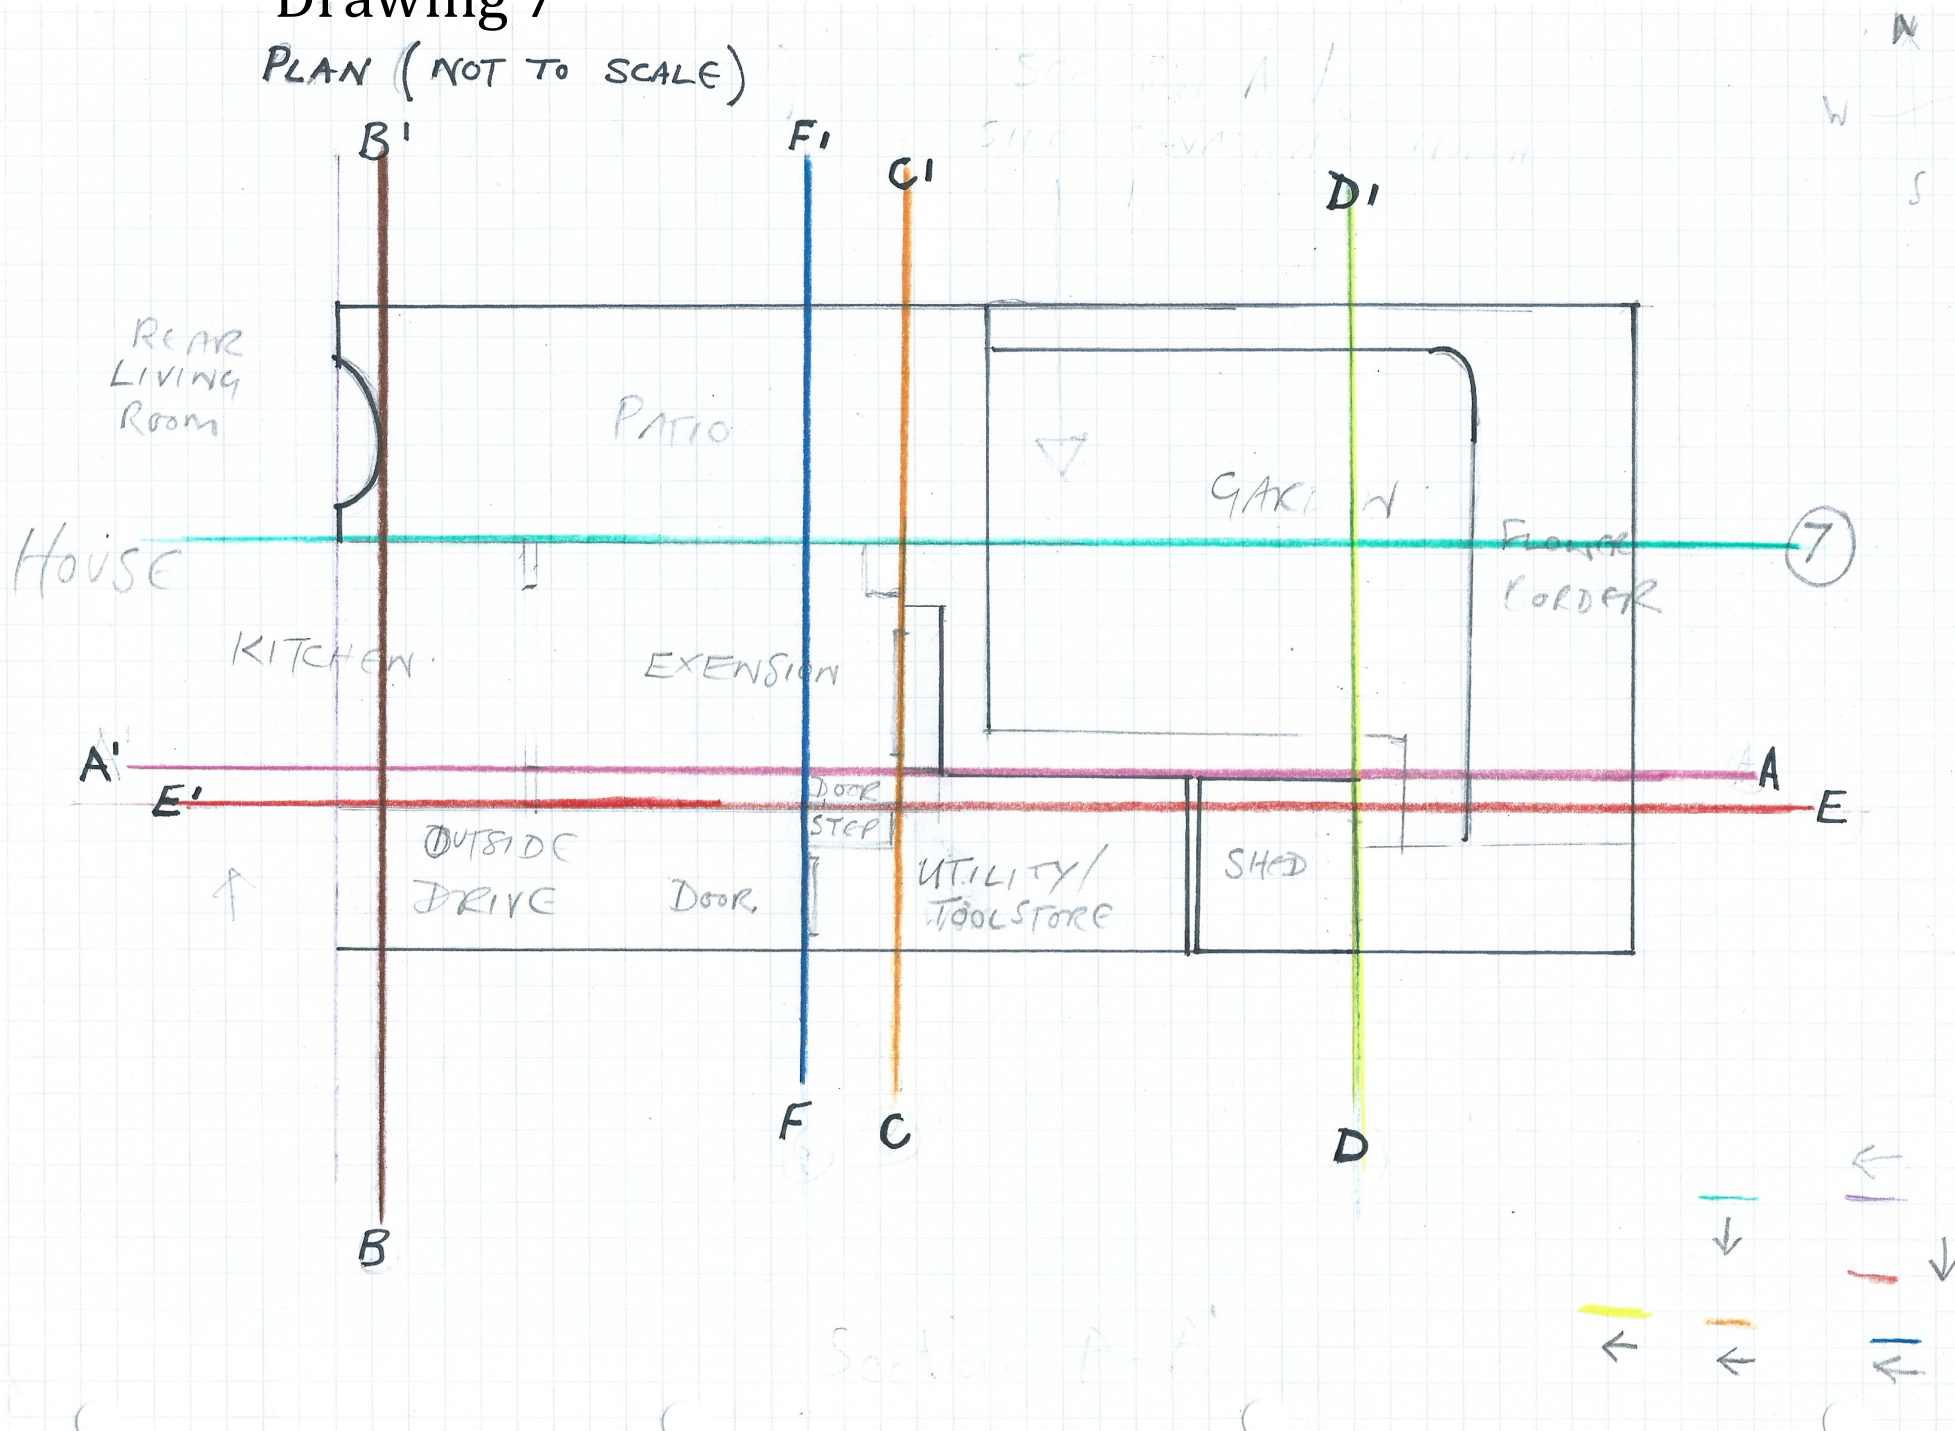 Drawing 7
PLAN (NOT TO SCALE)
N
W
S
B'
F'
C'
D'
REAR
LIVING
ROOM
PATIO
GARDEN
HOUSE
FLOWER
BORDER
7
KITCHEN
EXENSION
A'
A
E'
E
DOOR
STEP
OUTSIDE
DRIVE
DOOR
UTILITY/
TOOLSTORE
SHED
F
C
D
B
Section A-A'